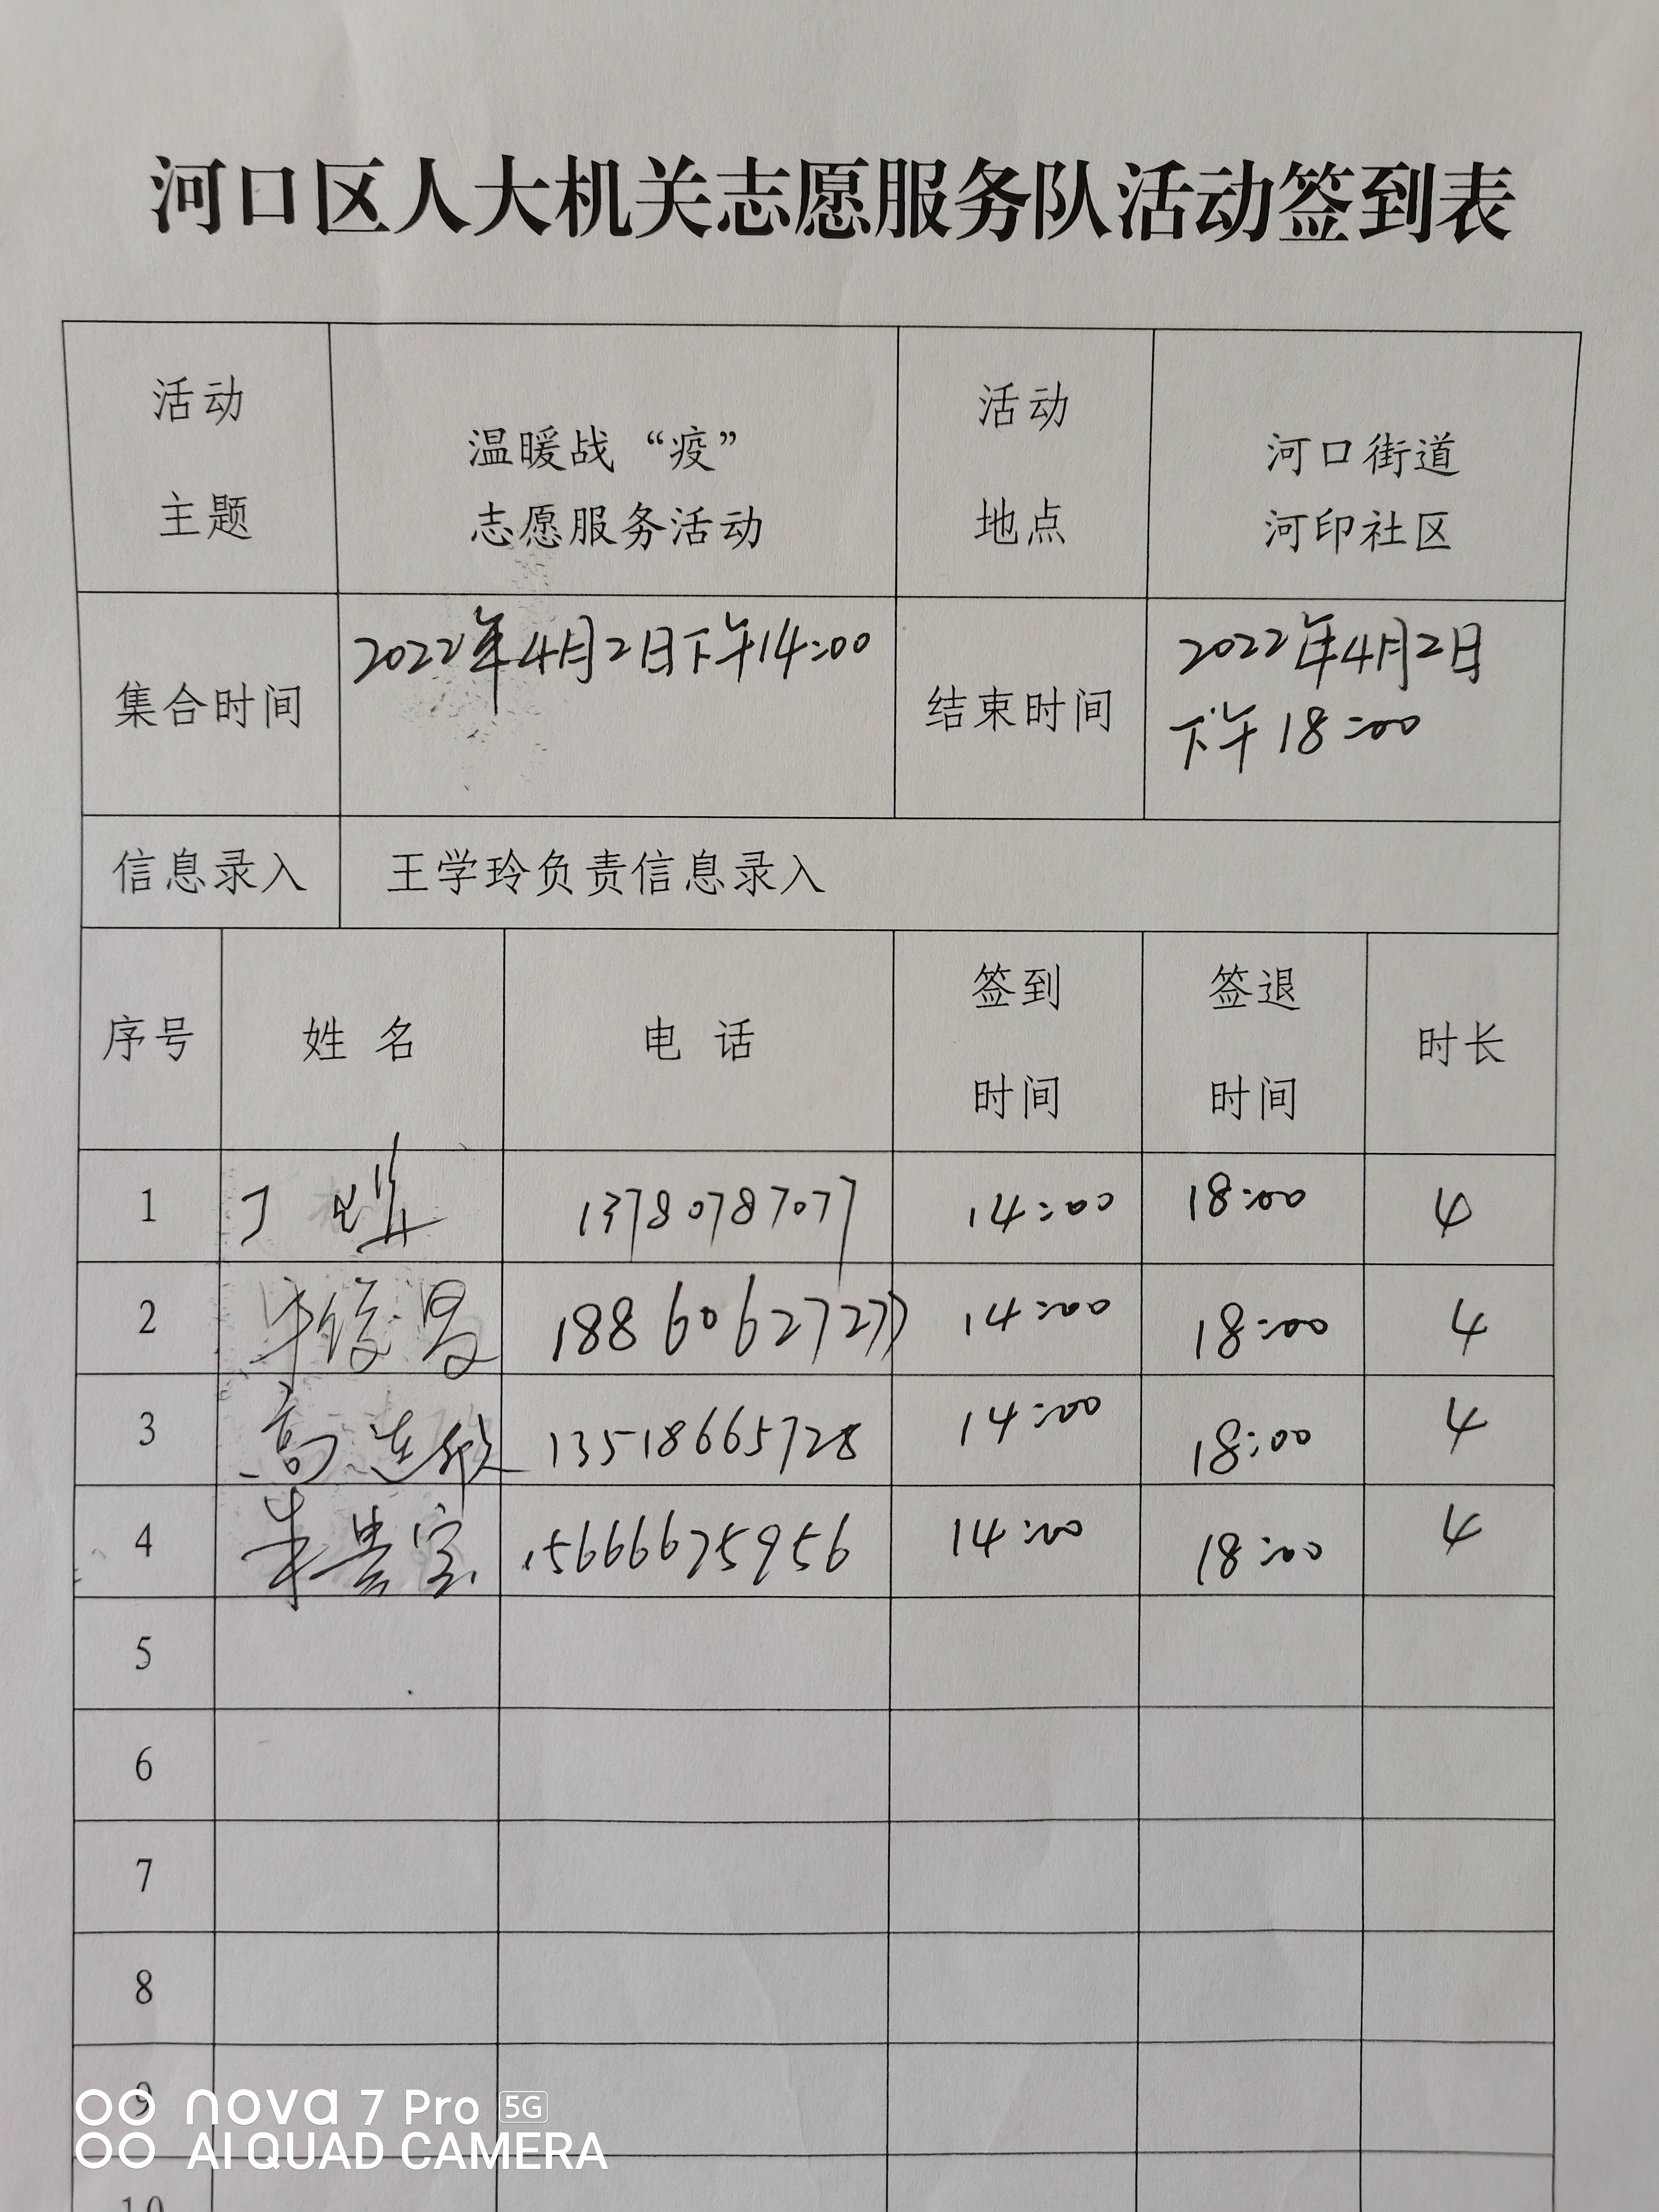 河口区人大机关志愿服务队活动签到表
活动
主题
温暖战“疫”
志愿服务活动
活动
地点
河口街道
河印社区
集合时间
2022年4月2日下午14:00
结束时间
2022年4月2日
下午18:00
信息录入
王学玲负责信息录入
序号 姓名 电话 签到时间 签退时间 时长
1 丁 13780787077 14:00 18:00 4
2 18860627277 14:00 18:00 4
3 高连 13518665728 14:00 18:00 4
4 朱贵宝 15666675956 14:00 18:00 4
5
6
7
8
9
10
nova 7 Pro 5G
AI QUAD CAMERA